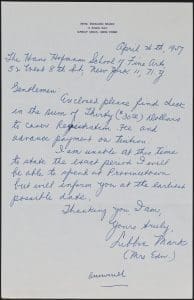 April 26th, 1957
The Hans Hofmann School of Fine Arts
52 West 8th St, New York 11, N.Y.
Gentlemen
Enclosed please find check
in the sum of Thirty ($30.00) Dollars
to cover Registration Fee and
advance payment on tuition.
I am unable at this time
to state the exact period I will
be able to spend at Provincetown
but will inform you at the earliest
possible date.
Thanking you I am,
Yours truly,
Libbie Mark
(Mrs Edw.)